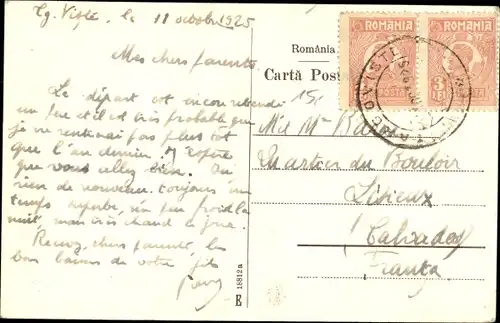 Tg. Viste, le 11 octobre 1925
Mes chers parents
Le départ est encore retardé
un peu et il est très probable que
je ne rentrerai pas plus tôt
que l'an dernier. J'espère
que vous allez bien. Ici
rien de nouveau. toujours un
temps superbe, un peu froid la
nuit, mais très chaud le jour.
Recevez, chers parents, les
bons baisers de votre fils
România
Cartă Pos
151
ROMANIA
ROMANIA
POSTA
3 LEI
Quartier du Bouloir
Lisieux
Calvados
Franța
18812a